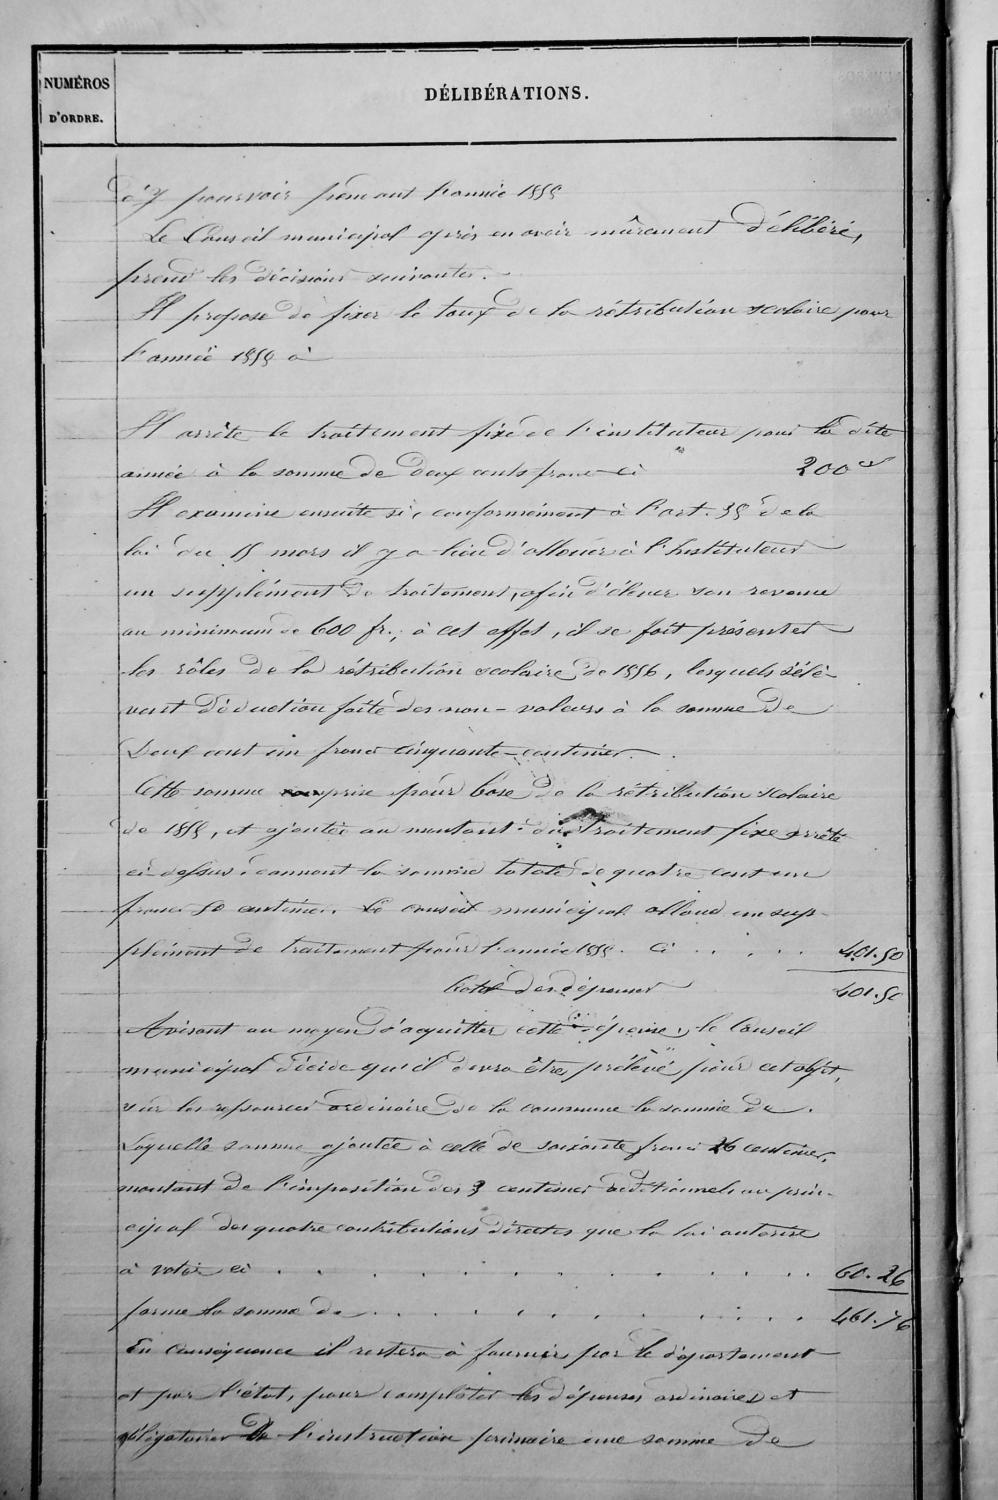 NUMÉROS
D'ORDRE.
DÉLIBÉRATIONS.
d'y pourvoir pendant l'année 1858
Le Conseil municipal après en avoir mûrement délibéré,
prend les décisions suivantes.
Il propose de fixer le taux de la rétribution scolaire pour
l'année 1858 à
Il arrête le traitement fixe de l'instituteur pour la dite
année à la somme de Deux cents francs ci 200
Il examine ensuite si, conformément à l'art. 38 de la
loi du 15 mars il y a lieu d'allouer à l'Instituteur
un supplément de traitement, afin d'élever son revenu
au minimum de 600 fr.; à cet effet, il se fait présenter
les rôles de la rétribution scolaire de 1856, lesquels s'élè-
vent déduction faite des non-valeurs à la somme de
Deux cent un francs cinquante centimes.
Cette somme prise pour base de la rétribution scolaire
de 1858, et ajoutée au montant du traitement fixe arrêté
ci dessus donnant la somme totale de quatre cent un
francs 50 centimes. Le conseil municipal alloue un sup-
plément de traitement pour l'année 1858. Ci . . . . . 401.50
Total des dépenses 401.50
Avisant au moyen d'acquitter cette dépense, le Conseil
municipal décide qu'il devra être prélevé pour cet objet,
sur les ressources ordinaires de la commune la somme de.
Laquelle somme ajoutée à celle de soixante francs 26 centimes,
montant de l'imposition des 3 centimes additionnels au prin-
cipal des quatre contributions directes que la loi autorise
à voter ci . . . . . . . . . . . . 60.26
forme la somme de . . . . . . . . . . 461.76
En conséquence il restera à fournir par le département
et par l'état, pour compléter les dépenses ordinaires et
obligatoires de l'instruction primaire une somme de